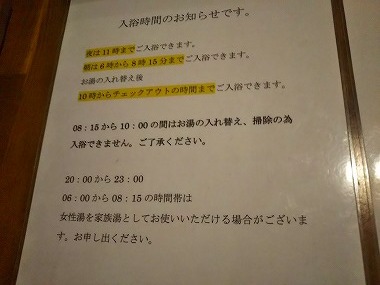 入浴時間のお知らせです。
夜は11時までご入浴できます。
朝は6時から8時15分までご入浴できます。
お湯の入れ替え後
10時からチェックアウトの時間までご入浴できます。
08:15から10:00の間はお湯の入れ替え、掃除の為
入浴できません。ご了承ください。
20:00から23:00
06:00から08:15の時間帯は
女性湯を家族湯としてお使いいただける場合がございま
す。お申し出ください。